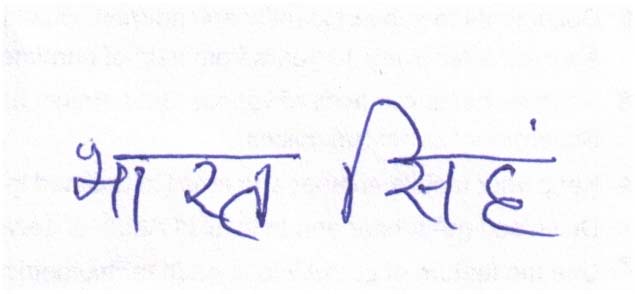 भारत सिहं